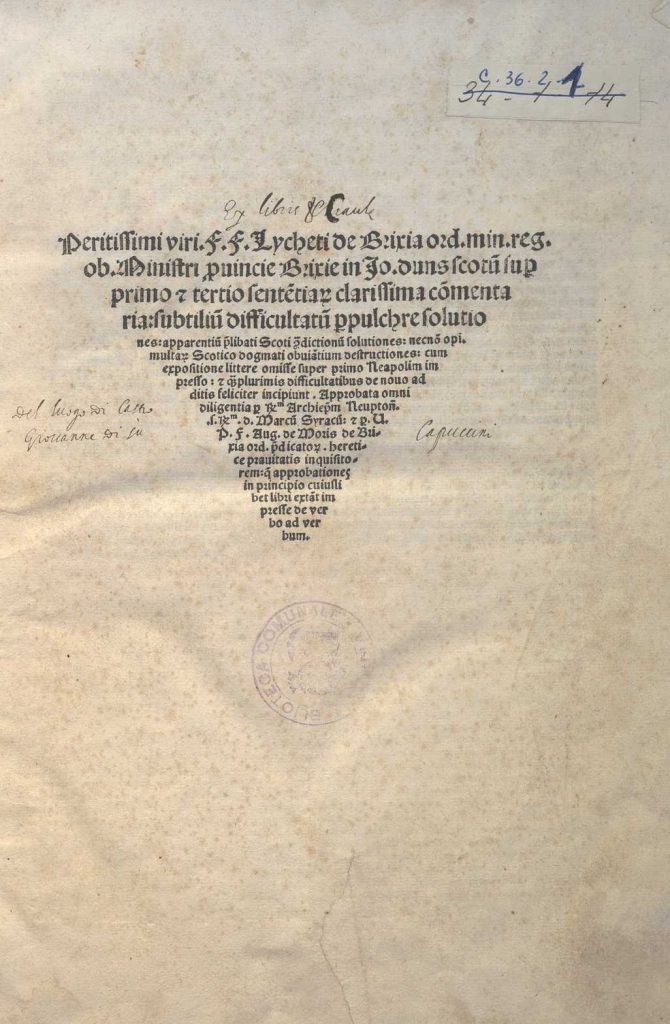 C. 36. 2. 1
34 - 1 - 14
Ex libris
Peritissimi viri. F. F. Lycheti de Brixia ord. min. reg.
ob. Ministri ꝓuincie Brixie in Jo. duns scotū suꝑ
primo ⁊ tertio sentētiaꝝ clarissima cōmenta
ria: subtiliū difficultatū ꝑpulchre solutio
nes: apparentiū p̄libati Scoti p̄dictionū solutiones: necnō opi.
multaꝝ Scotico dogmati obuiātium destructiones: cum
expositione littere omisse super primo Neapolim im
presso: ⁊ qȝplurimis difficultatibus de nouo ad
ditis feliciter incipiunt. Approbata omni
diligentia ꝑ Rᵐ Archiep̄m Neupton̄.
.s. Rᵐ. d. Marcū Syracū: ⁊ ꝑ. U.
P. F. Aug. de Moris de Bri-
xia ord. p̄dicatoꝝ. hereti-
ce prauitatis inquisito-
rem: q̄ approbationes
in principio cuiusli
bet libri extāt im
presse de ver
bo ad ver
bum.
del luogo di
Giovanne di
Capuccini
BIBLIOTECA COMUNALE